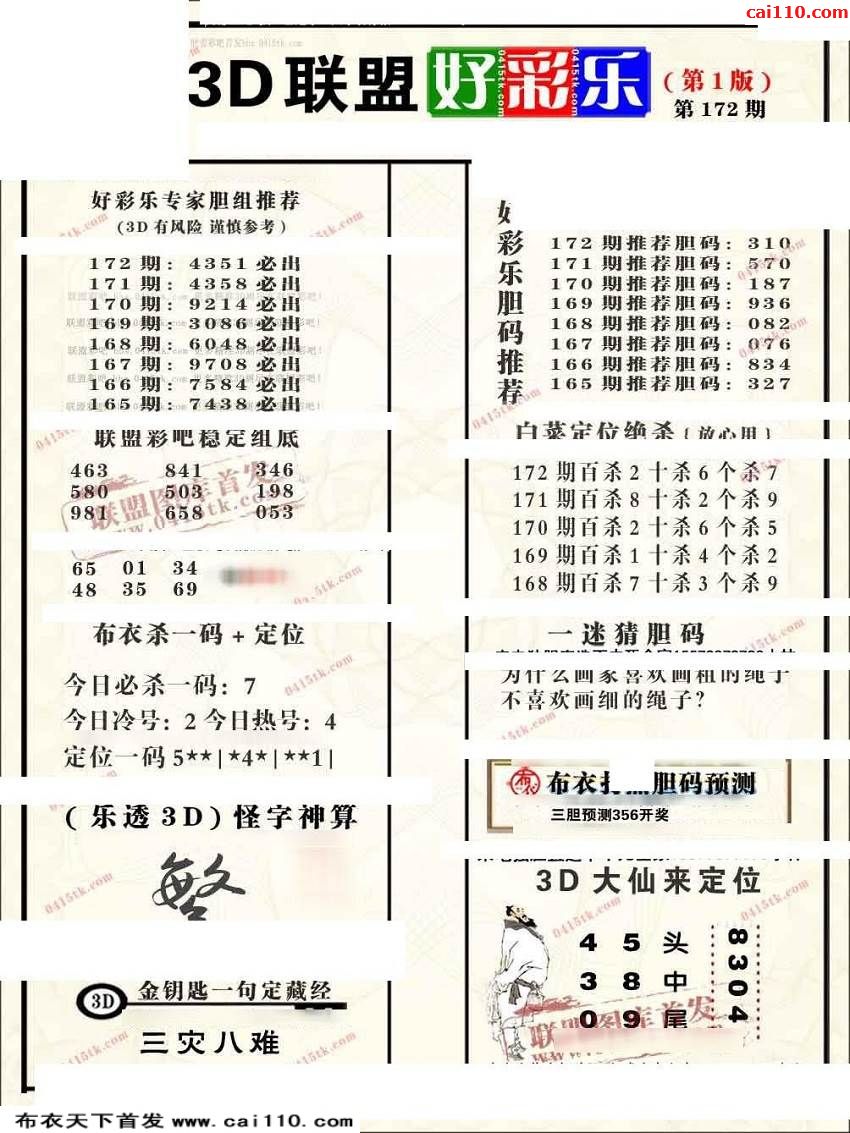 cai110.com
3D联盟好彩乐
(第1版)
第172期
好彩乐专家胆组推荐
(3D有风险 谨慎参考)
172期:4351必出
171期:4358必出
170期:9214必出
169期:3086必出
168期:6048必出
167期:9708必出
166期:7584必出
165期:7438必出
联盟彩吧稳定组底
463 841 346
580 503 198
981 658 053
65 01 34
48 35 69
布衣杀一码+定位
今日必杀一码:7
今日冷号:2 今日热号:4
定位一码5**|*4*|**1|
(乐透3D)怪字神算
3D 金钥匙一句定藏经
三灾八难
好彩乐胆码推荐
172期推荐胆码:310
171期推荐胆码:570
170期推荐胆码:187
169期推荐胆码:936
168期推荐胆码:082
167期推荐胆码:076
166期推荐胆码:834
165期推荐胆码:327
白菜定位绝杀{放心用}
172期百杀2十杀6个杀7
171期百杀8十杀2个杀9
170期百杀2十杀6个杀5
169期百杀1十杀4个杀2
168期百杀7十杀3个杀9
一迷猜胆码
为什么画家喜欢画粗的绳子
不喜欢画细的绳子?
布衣 胆码预测
三胆预测356开奖
3D大仙来定位
4 5 头
3 8 中
0 9 尾
8304
联盟图库首发
www.0415tk.com
布衣天下首发 www.cai110.com